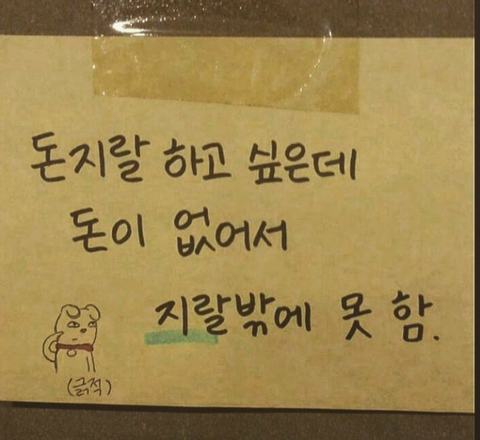 돈지랄 하고 싶은데
돈이 없어서
지랄밖에 못 함.
(긁적)